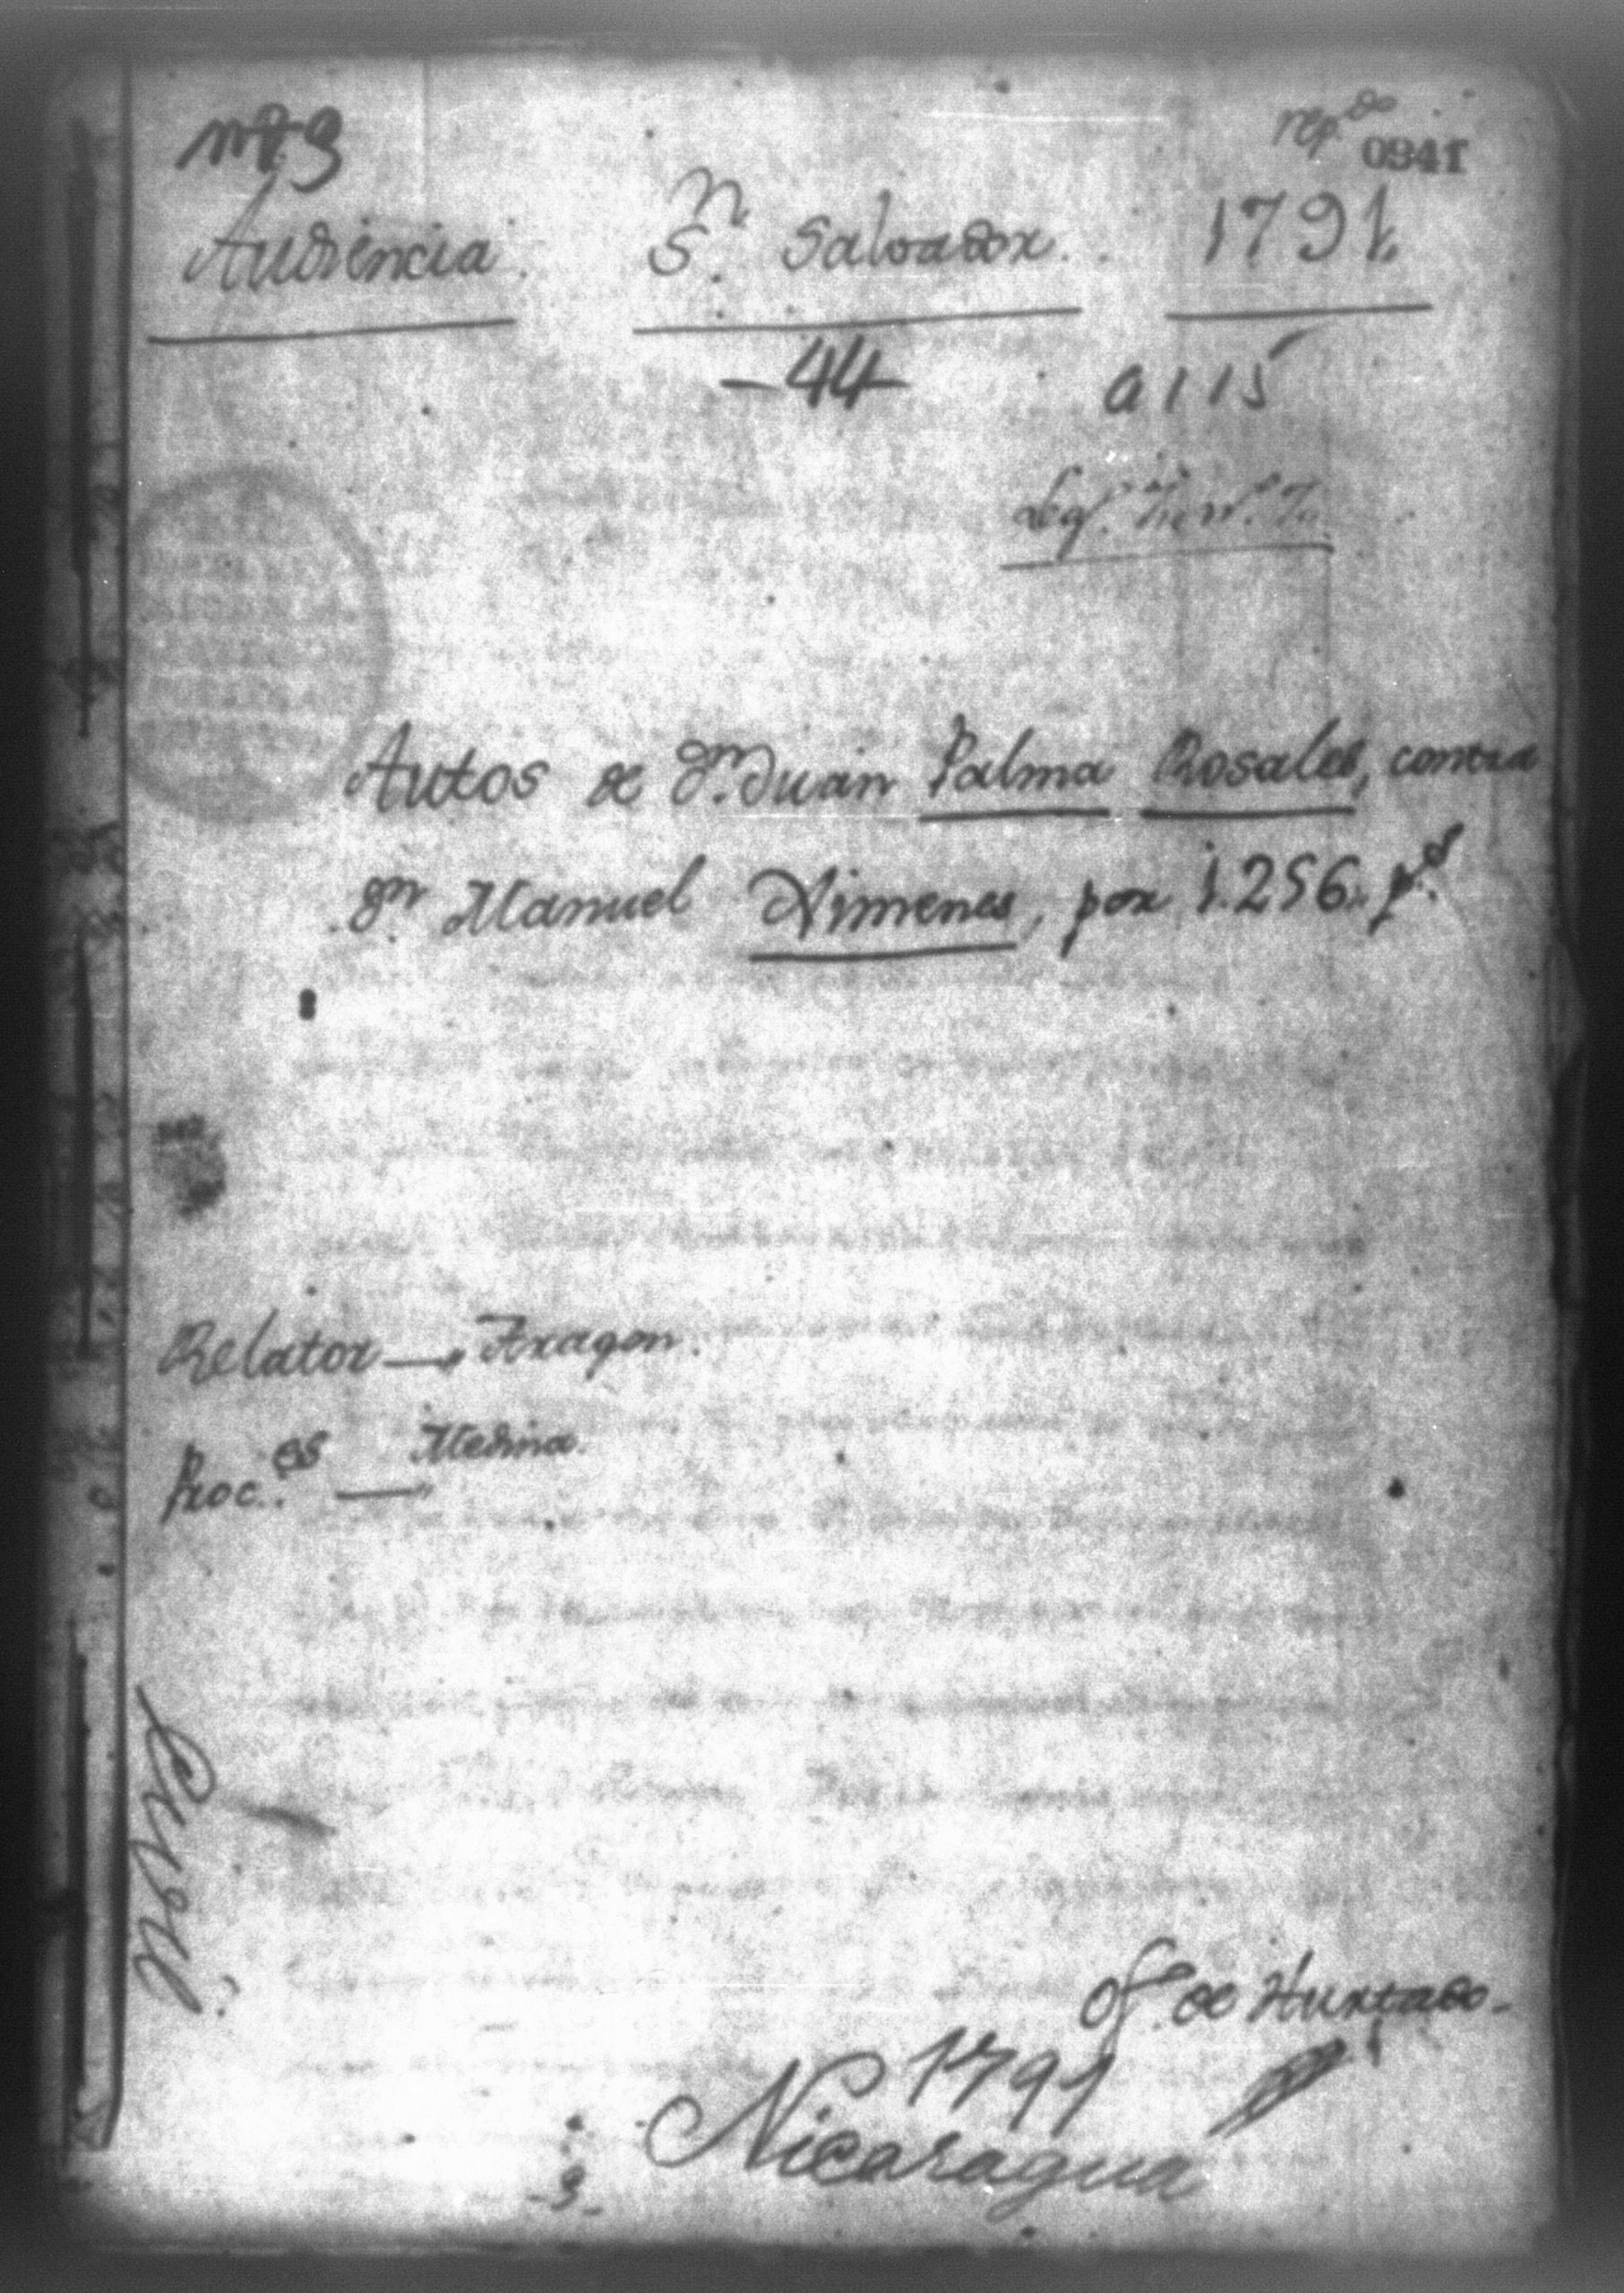 nº 3
rep.do 0941
Audiencia. Sn. Salvador. 1791
-44- a 115
Leg.
Autos de Dn. Juan Palma Rosales, contra
Dn. Manuel Ximenes, por 1.256. ps.
Relator — Aragon.
Proc.es — Medina.
Civil
Of. de Hurtado.
1791
Nicaragua
-3-